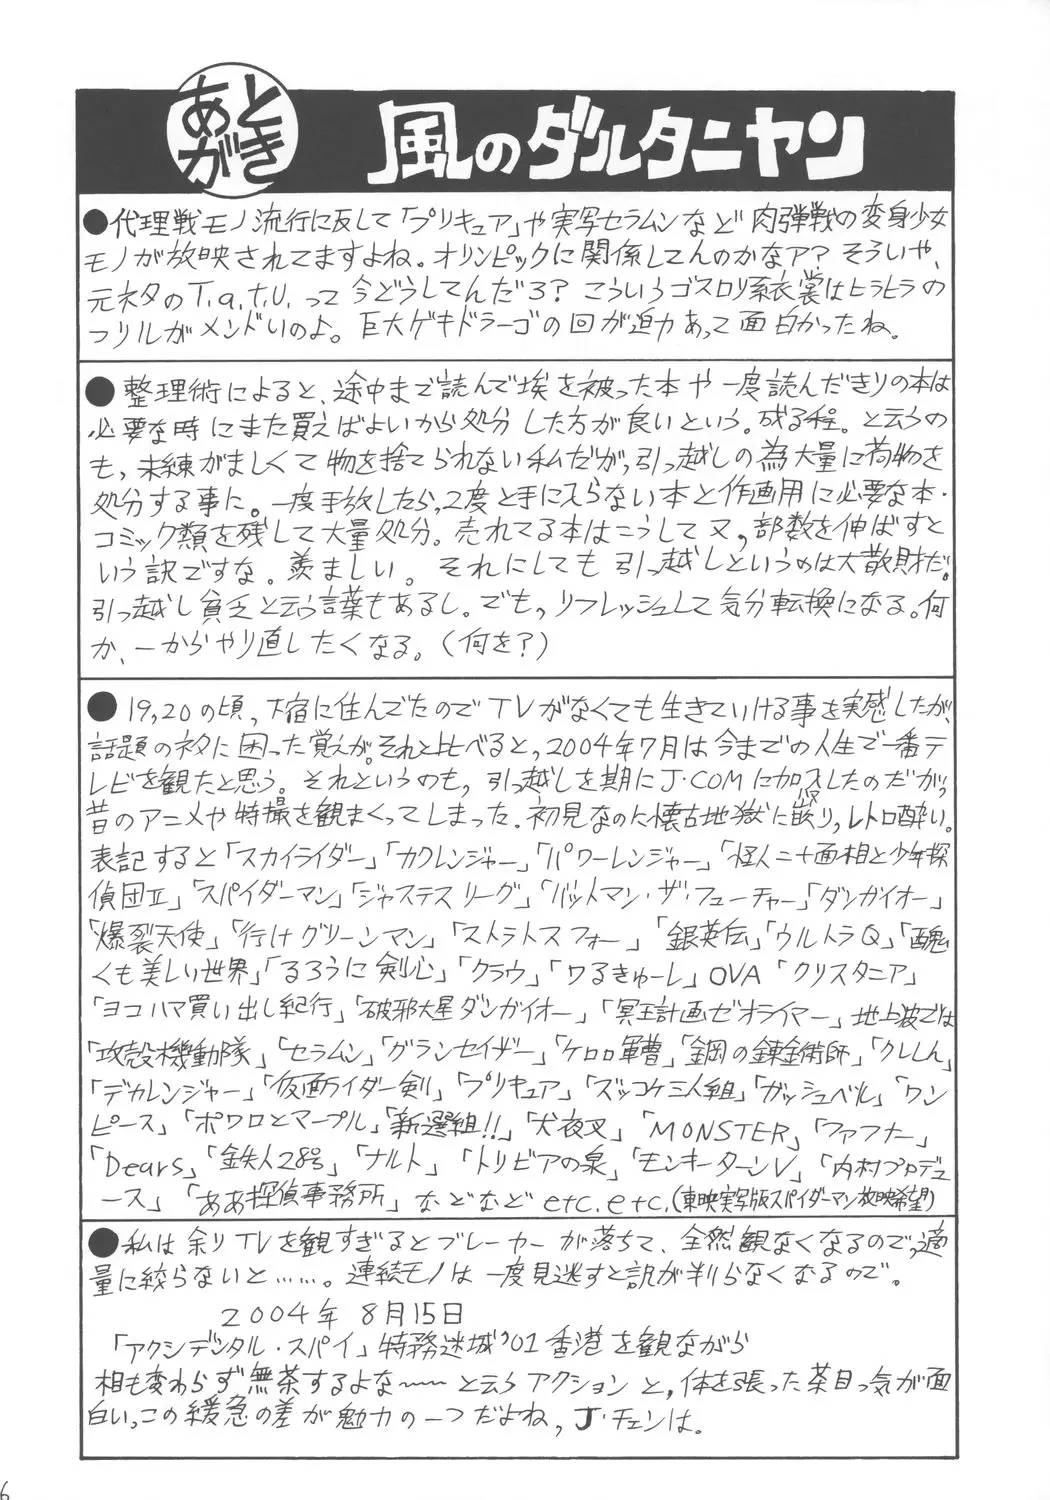 あとがき 風のダルタニヤン
●代理戦モノ流行に反して「プリキュア」や実写セラムンなど肉弾戦の変身少女
モノが放映されてますよね。オリンピックに関係してんのかなァ?そういや、
元ネタのT.a.t.u.って今どうしてんだろ?こういうゴスロリ系衣裳はヒラヒラの
フリルがメンドいのよ。巨大ゲキドラーゴの回が迫力あって面白かったね。
●整理術によると、途中まで読んで埃を被った本や一度読んだきりの本は
必要な時にまた買えばよいから処分した方が良いという。成る程。と云うの
も、未練がましくて物を捨てられない私だが、引っ越しの為大量に荷物を
処分する事に。一度手放したら、2度と手に入らない本と作画用に必要な本・
コミック類を残して大量処分。売れてる本はこうして又、部数を伸ばすと
いう訳ですな。羨ましい。それにしても引っ越しというのは大散財だ。
引っ越し貧乏と云う言葉もあるし。でも、リフレッシュして気分転換になる。何
か、一からやり直したくなる。(何を?)
●19,20の頃、下宿に住んでたのでTVがなくても生きていける事を実感したが、
話題のネタに困った覚えが。それと比べると、2004年7月は今までの人生で一番テ
レビを観たと思う。それというのも、引っ越しを期にJ·COMに加入したのだが、
昔のアニメや特撮を観まくってしまった。初見なのに懐古地獄に嵌り、レトロ酔い。
表記すると「スカイライダー」「カクレンジャー」「パワーレンジャー」「怪人二十面相と少年探
偵団Ⅱ」「スパイダーマン」「ジャステスリーグ」「バットマン・ザ・フューチャー」「ダンガイオー」
「爆裂天使」「行けグリーンマン」「ストラトスフォー」「銀英伝」「ウルトラQ」「醜
くも美しい世界」「るろうに剣心」「クラウ」「ワるきゅーレ」OVA「クリスタニア」
「ヨコハマ買い出し紀行」「破邪大星ダンガイオー」「冥王計画ゼオライマー」地上波では
「攻殻機動隊」「セラムン」「グランセイザー」「ケロロ軍曹」「鋼の錬金術師」「クレしん」
「デカレンジャー」「仮面ライダー剣」「プリキュア」「ズッコケ三人組」「ガッシュベル」「ワン
ピース」「ポワロとマープル」「新選組!!」「犬夜叉」「MONSTER」「ファフナー」
「Dears」「鉄人28号」「ナルト」「トリビアの泉」「モンキーターンV」「内村プロデュ
ース」「ああ探偵事務所」などなどetc.etc.(東映実写版スパイダーマン放映希望)
●私は余りTVを観すぎるとブレーカーが落ちて、全然観なくなるので、適
量に絞らないと……。連続モノは一度見逃すと訳が判らなくなるので。
2004年8月15日
「アクシデンタル・スパイ」特務迷城'01香港を観ながら
相も変わらず無茶するよな〜〜と云うアクションと、体を張った茶目っ気が面
白い。この緩急の差が魅力の一つだよね、J・チェンは。
6